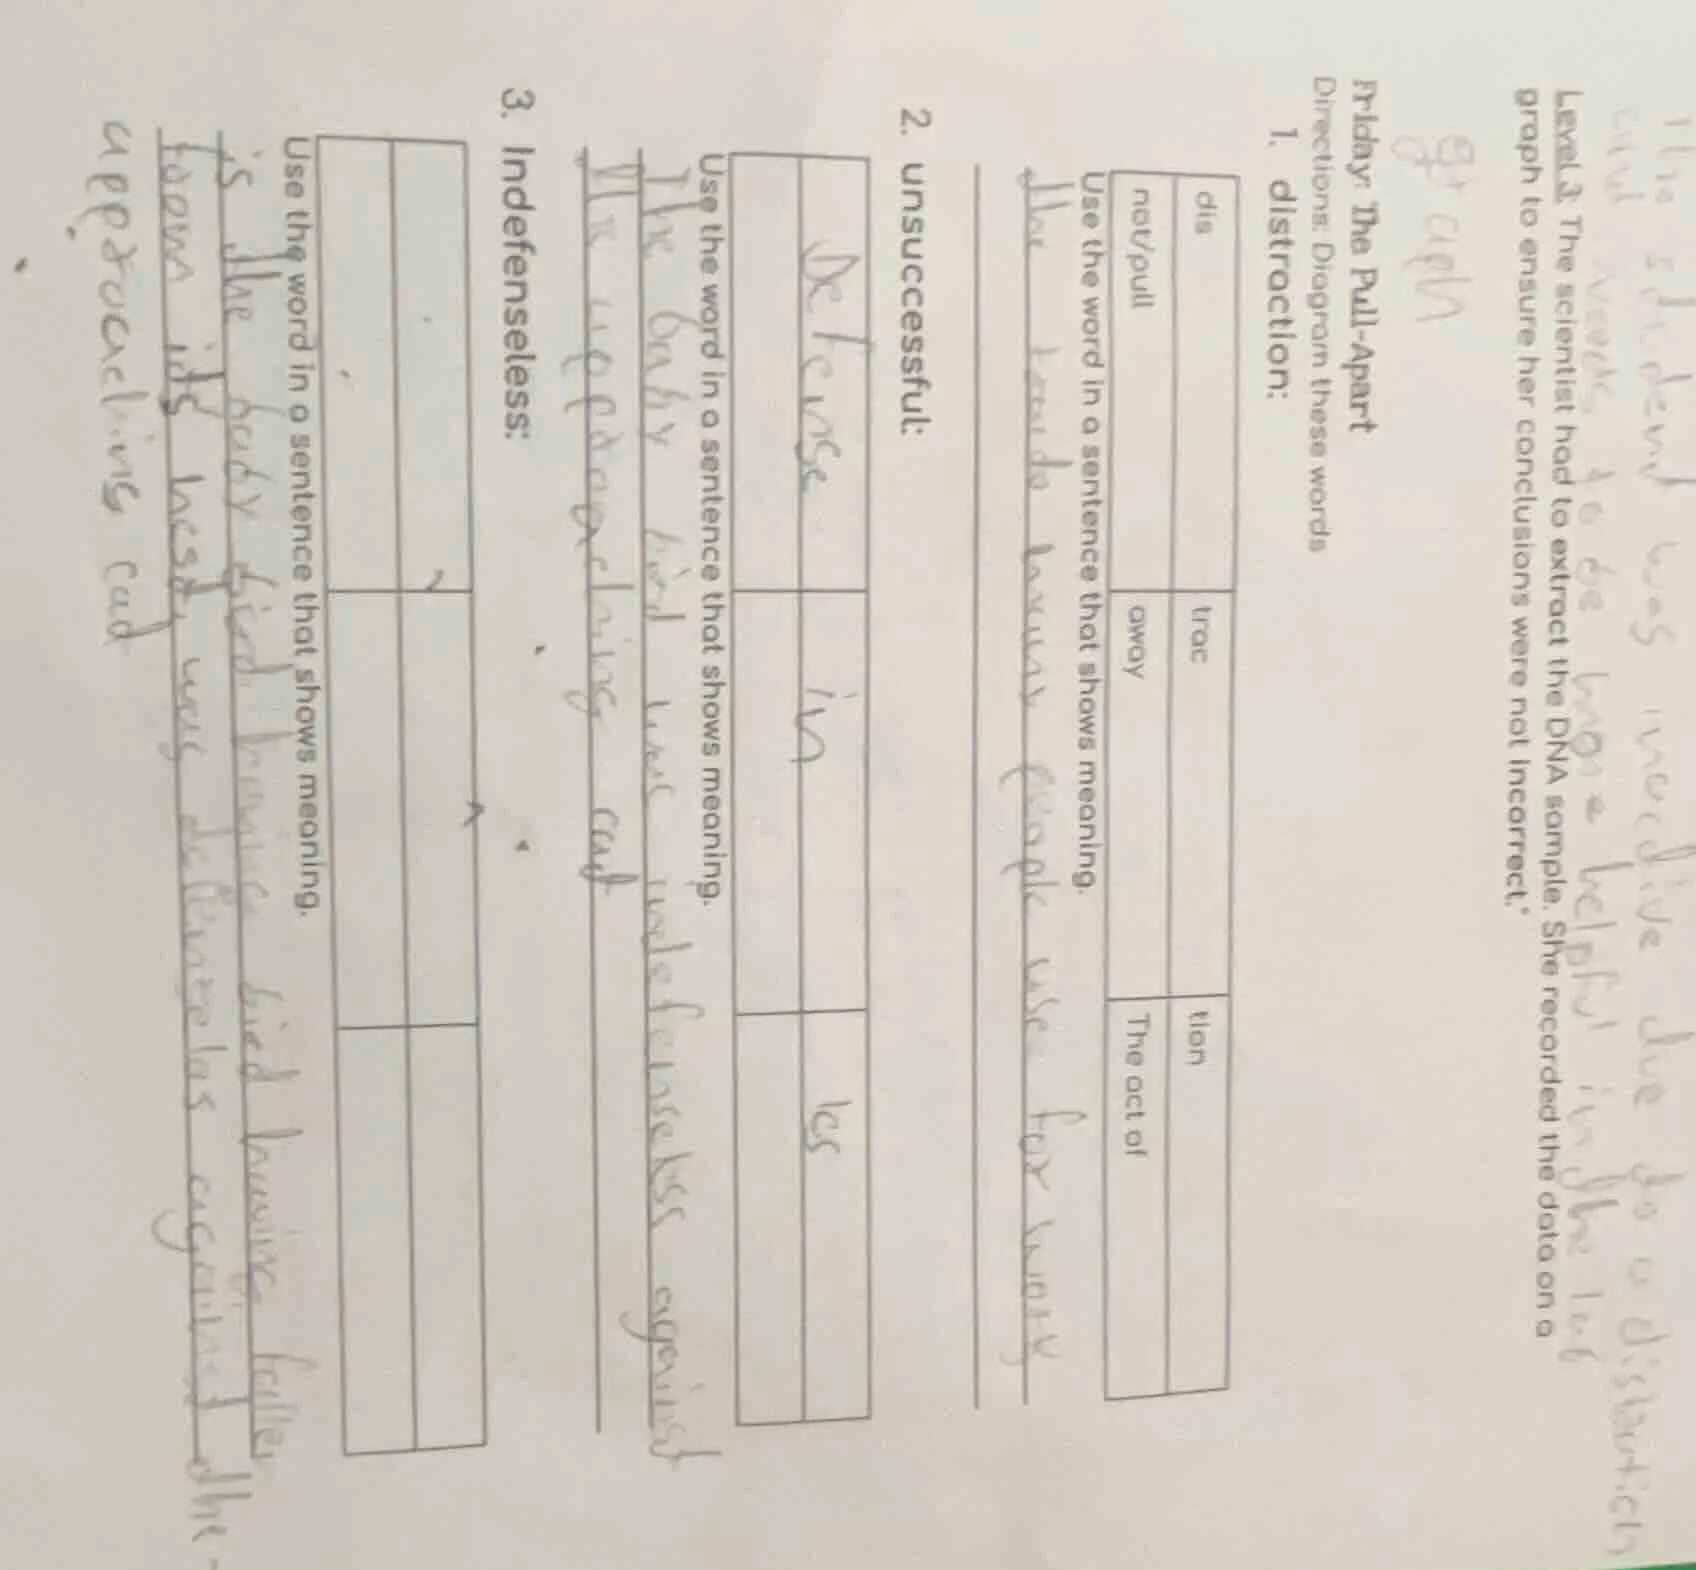 The student was inactive due to a distauction
and needs to be huge helpful in the lab
Level 3: The scientist had to extract the DNA sample. She recorded the data on a
graph to ensure her conclusions were not incorrect."
graph
Friday: The Pull-Apart
Directions: Diagram these words
1. distraction:
dis trac tion
not/pull away The act of
Use the word in a sentence that shows meaning.
the many people use for work
2. unsuccessful:
Defense in les
Use the word in a sentence that shows meaning.
The baby bird was indefenseless against
the approaching cat
3. Indefenseless:
Use the word in a sentence that shows meaning.
is the baby bird bird having fallen
from its nest, was defenselas against the
approaching cat